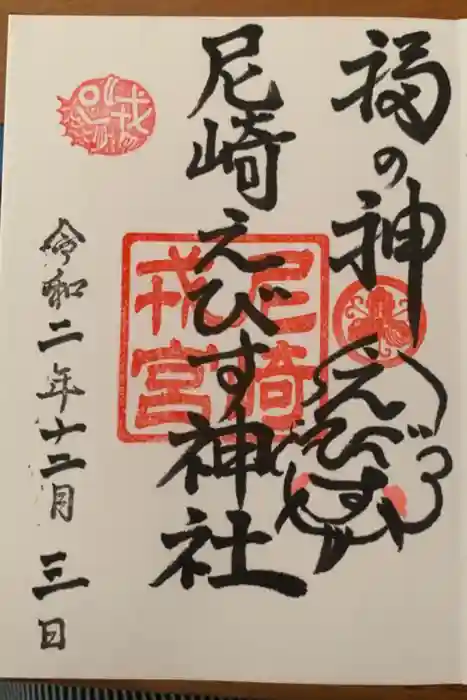 福の神
えびす
尼崎えびす神社
尼崎
戎宮
戎
令和二年十二月三日